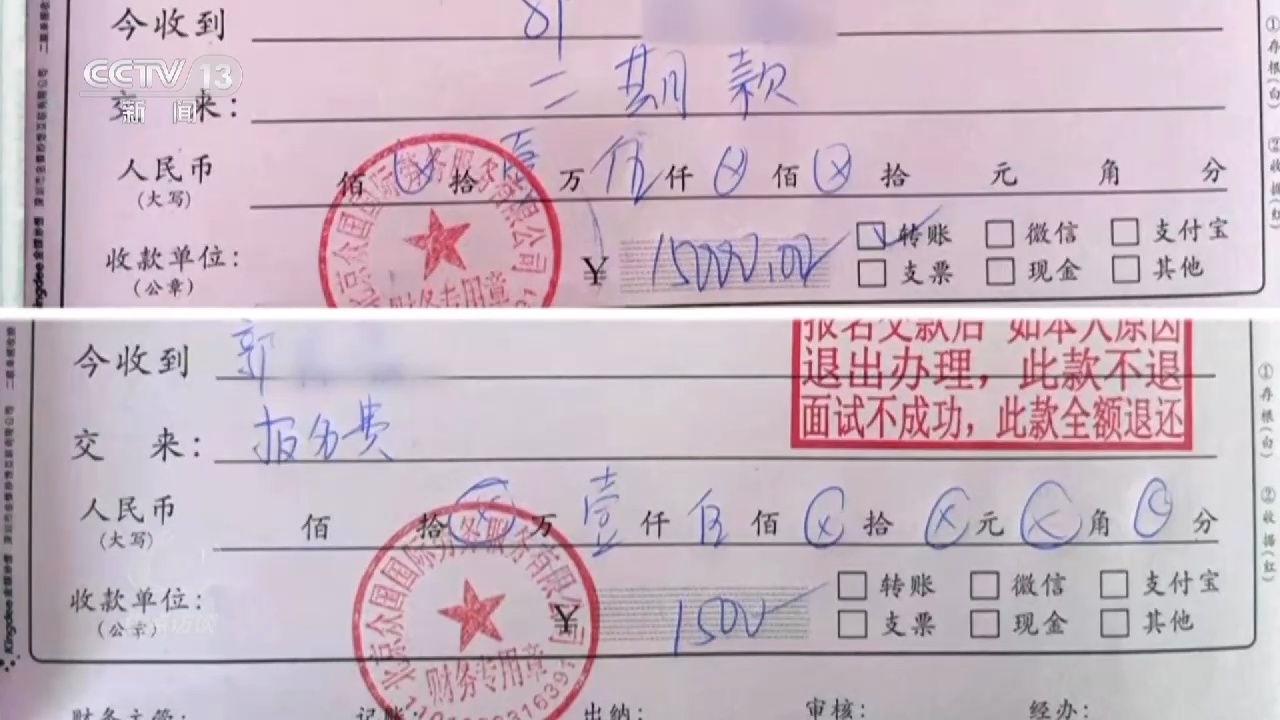 CCTV 13
新闻
今收到 郭
交来: 二期款
人民币 佰 ⊗ 拾 壹 万 伍 仟 ⊗ 佰 ⊗ 拾 元 角 分
(大写)
收款单位: ¥ 15000.00
(公章)
□ 转账 □ 微信 □ 支付宝
□ 支票 □ 现金 □ 其他
北京众国国际劳务服务有限公司
财务专用章
①存根(白) ②收据(红)
今收到 郭
报名交款后 如本人原因
退出办理，此款不退
面试不成功，此款全额退还
交 来: 报名费
人民币 佰 拾 ⊗ 万 壹 仟 伍 佰 ⊗ 拾 ⊗ 元 ⊗ 角 ⊗ 分
(大写)
收款单位: ¥ 1500
(公章)
□ 转账 □ 微信 □ 支付宝
□ 支票 □ 现金 □ 其他
北京众国国际劳务服务有限公司
财务专用章
①存根(白) ②收据(红)
Kingdee
财务主管: 记账: 出纳: 审核: 经办: